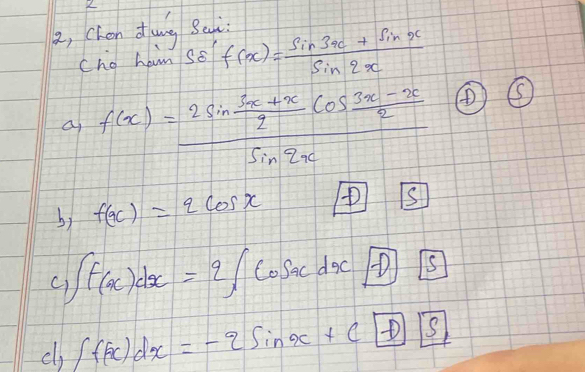 2, Chọn đúng Sai:
Cho hàm số f(x) = (sin 3x + sin x) / sin 2x
a, f(x) = (2 sin (3x + x)/2 cos (3x - x)/2) / sin 2x Đ S
b, f(x) = 2 cos x Đ S
c, ∫ f(x) dx = 2 ∫ cos x dx Đ S
d, ∫ f(x) dx = -2 sin x + C Đ S